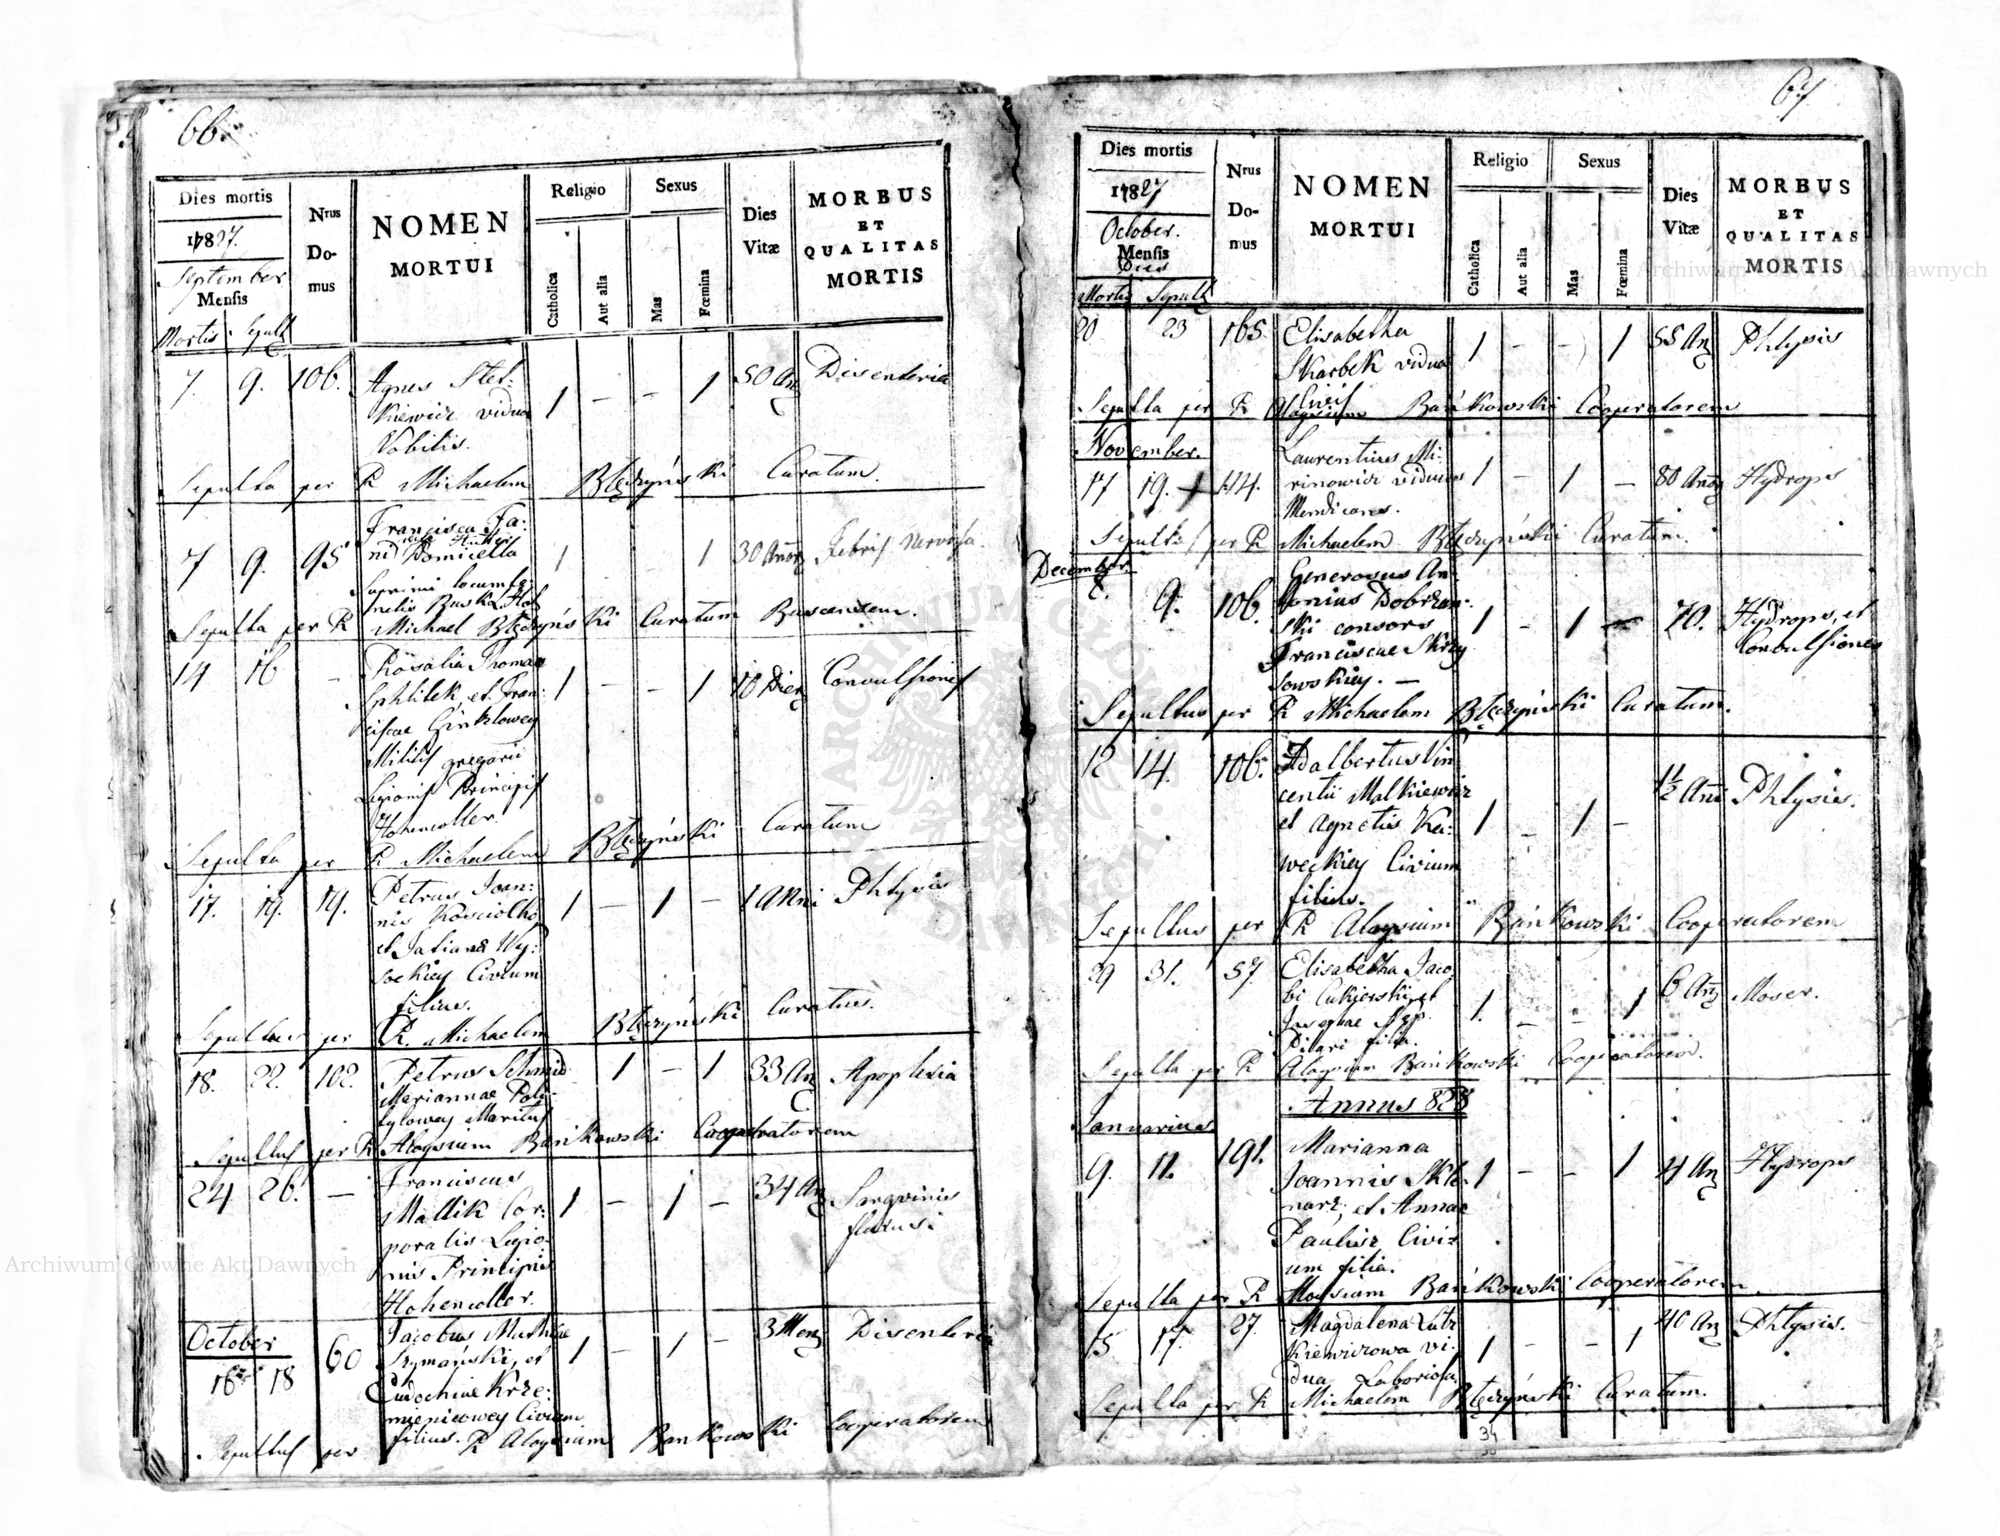 66.
Dies mortis
Nrus
Do-
mus
NOMEN
MORTUI
Religio
Sexus
Catholica
Aut alia
Mas
Fœmina
Dies
Vitæ
MORBUS
ET
QUALITAS
MORTIS
1827.
September
Mensis
Mortis Sepult
7. 9. 106. Agnes Stef- 1 – – 1 50 An Disenteria
kiewicz vidua
Nobilis.
Sepulta per R Michaelem Błędzyński Curatum.
7 9. 95 Francisca Fa- 1 1 30 Annor Febris Nervosa.
nid Domicella
Supremi locumte-
nelis Buska
Sepulta per R Michael Błędzyński Curatum Buscensem.
14 16 – Rosalia Thomae 1 – – 1 10 Dier Convulsiones
Sphlilek, et Fran-
ciscae
Militis gregarii
Legionis Principis
Hohenzoller.
Sepulta per R Michaelem Błędzyński Curatum
17. 19. 19. Petrus Joan- 1 – 1 – 1 Anni Phtysis
nis Kościołko
et Tatianae Wy-
sockiey Civium
filius.
Sepultus per R. Michaelem Błędzyński Curatus.
18. 22. 102. Petrus Schmid 1 – 1 33 An Apoplexia
Mariannae
Maritus
Sepultus per R Aloysium Bańkowski Cooperatorem
24 26. – Franciscus 1 – 1 – 34 An Sangvinis
Mallik Cor- fluxus.
poralis Legio-
nis Principis
Hohenzoller.
October
16 18 60 Jacobus Mathiae 1 – 1 – 3 Men Disenteria
Szymański, et
Eudochiae Krze-
mienicowey Civium
filius.
Sepultus per R Aloysium Bankowski Cooperatorem
67
Dies mortis
Nrus
Do-
mus
NOMEN
MORTUI
Religio
Sexus
Catholica
Aut alia
Mas
Fœmina
Dies
Vitæ
MORBUS
ET
QUALITAS
MORTIS
1827
October.
Mensis
Dies
Mortis Sepult
20 23 165 Elisabetha 1 – – 1 55 An Phtysis
Skarbek vidua
Civis
Sepulta per R Aloysium Bańkowski Cooperatorem
November.
17 19. 144. Laurentius Mi- 1 – 1 – 80 Anor Hydrops
rinowicz viduus
Mendicans.
Sepultus per R Michaelem Błędzyński Curatum.
December.
8. 9. 106 Generosus An- 1 – 1 – 70. Hydrops, et
tonius Dobrzan- Convulsiones
ski consors
Franciscae Skrzy
sowskiey. –
Sepultus per R Michaelem Błędzyński Curatum.
12 14. 106. Adalbertus Vin 1 – 1 – 1½ Anni Phtysis.
centii Malkiewicz
et Agnetis Ka-
weckiey Civium
filius.
Sepultus per R Aloysium Bańkowski Cooperatorem
29 31. 57. Elisabetha Jaco- 1. – – 1 6 An Moser.
bi Cukierski, et
filia.
Sepulta per R Aloysium Bańkowski Cooperatorem.
Annus 828
Januarius
9. 11. 191. Marianna 1 – – 1 4 An Hydrops
Joannis Skle-
narz, et Annae
Paulisz Civi-
um filia.
Sepulta per R Aloysium Bańkowski Cooperatorem
15 17. 27. Magdalena Lutz 1 – – 1 40 An Phtysis.
kiewiczowa vi-
dua Laboriosa
Sepulta per R Michaelem Błędzyński Curatum.
34
Archiwum Główne Akt Dawnych
Archiwum Główne Akt Dawnych
ARCHIWUM GŁÓWNE AKT DAWNYCH